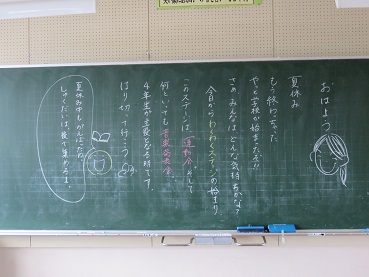 おはよう
夏休み
もう終わっちゃった
やっと学校が始まったぞ!!
さあ、みんなはどんな気持ちかな?
今日からわくわくステージの始まり
このステージは「運動会」そして
何といっても音楽発表会。
4年生が主役となる時です。
はり切って行こう
夏休みがんばったね
しゅくだいは後で集めるよ。